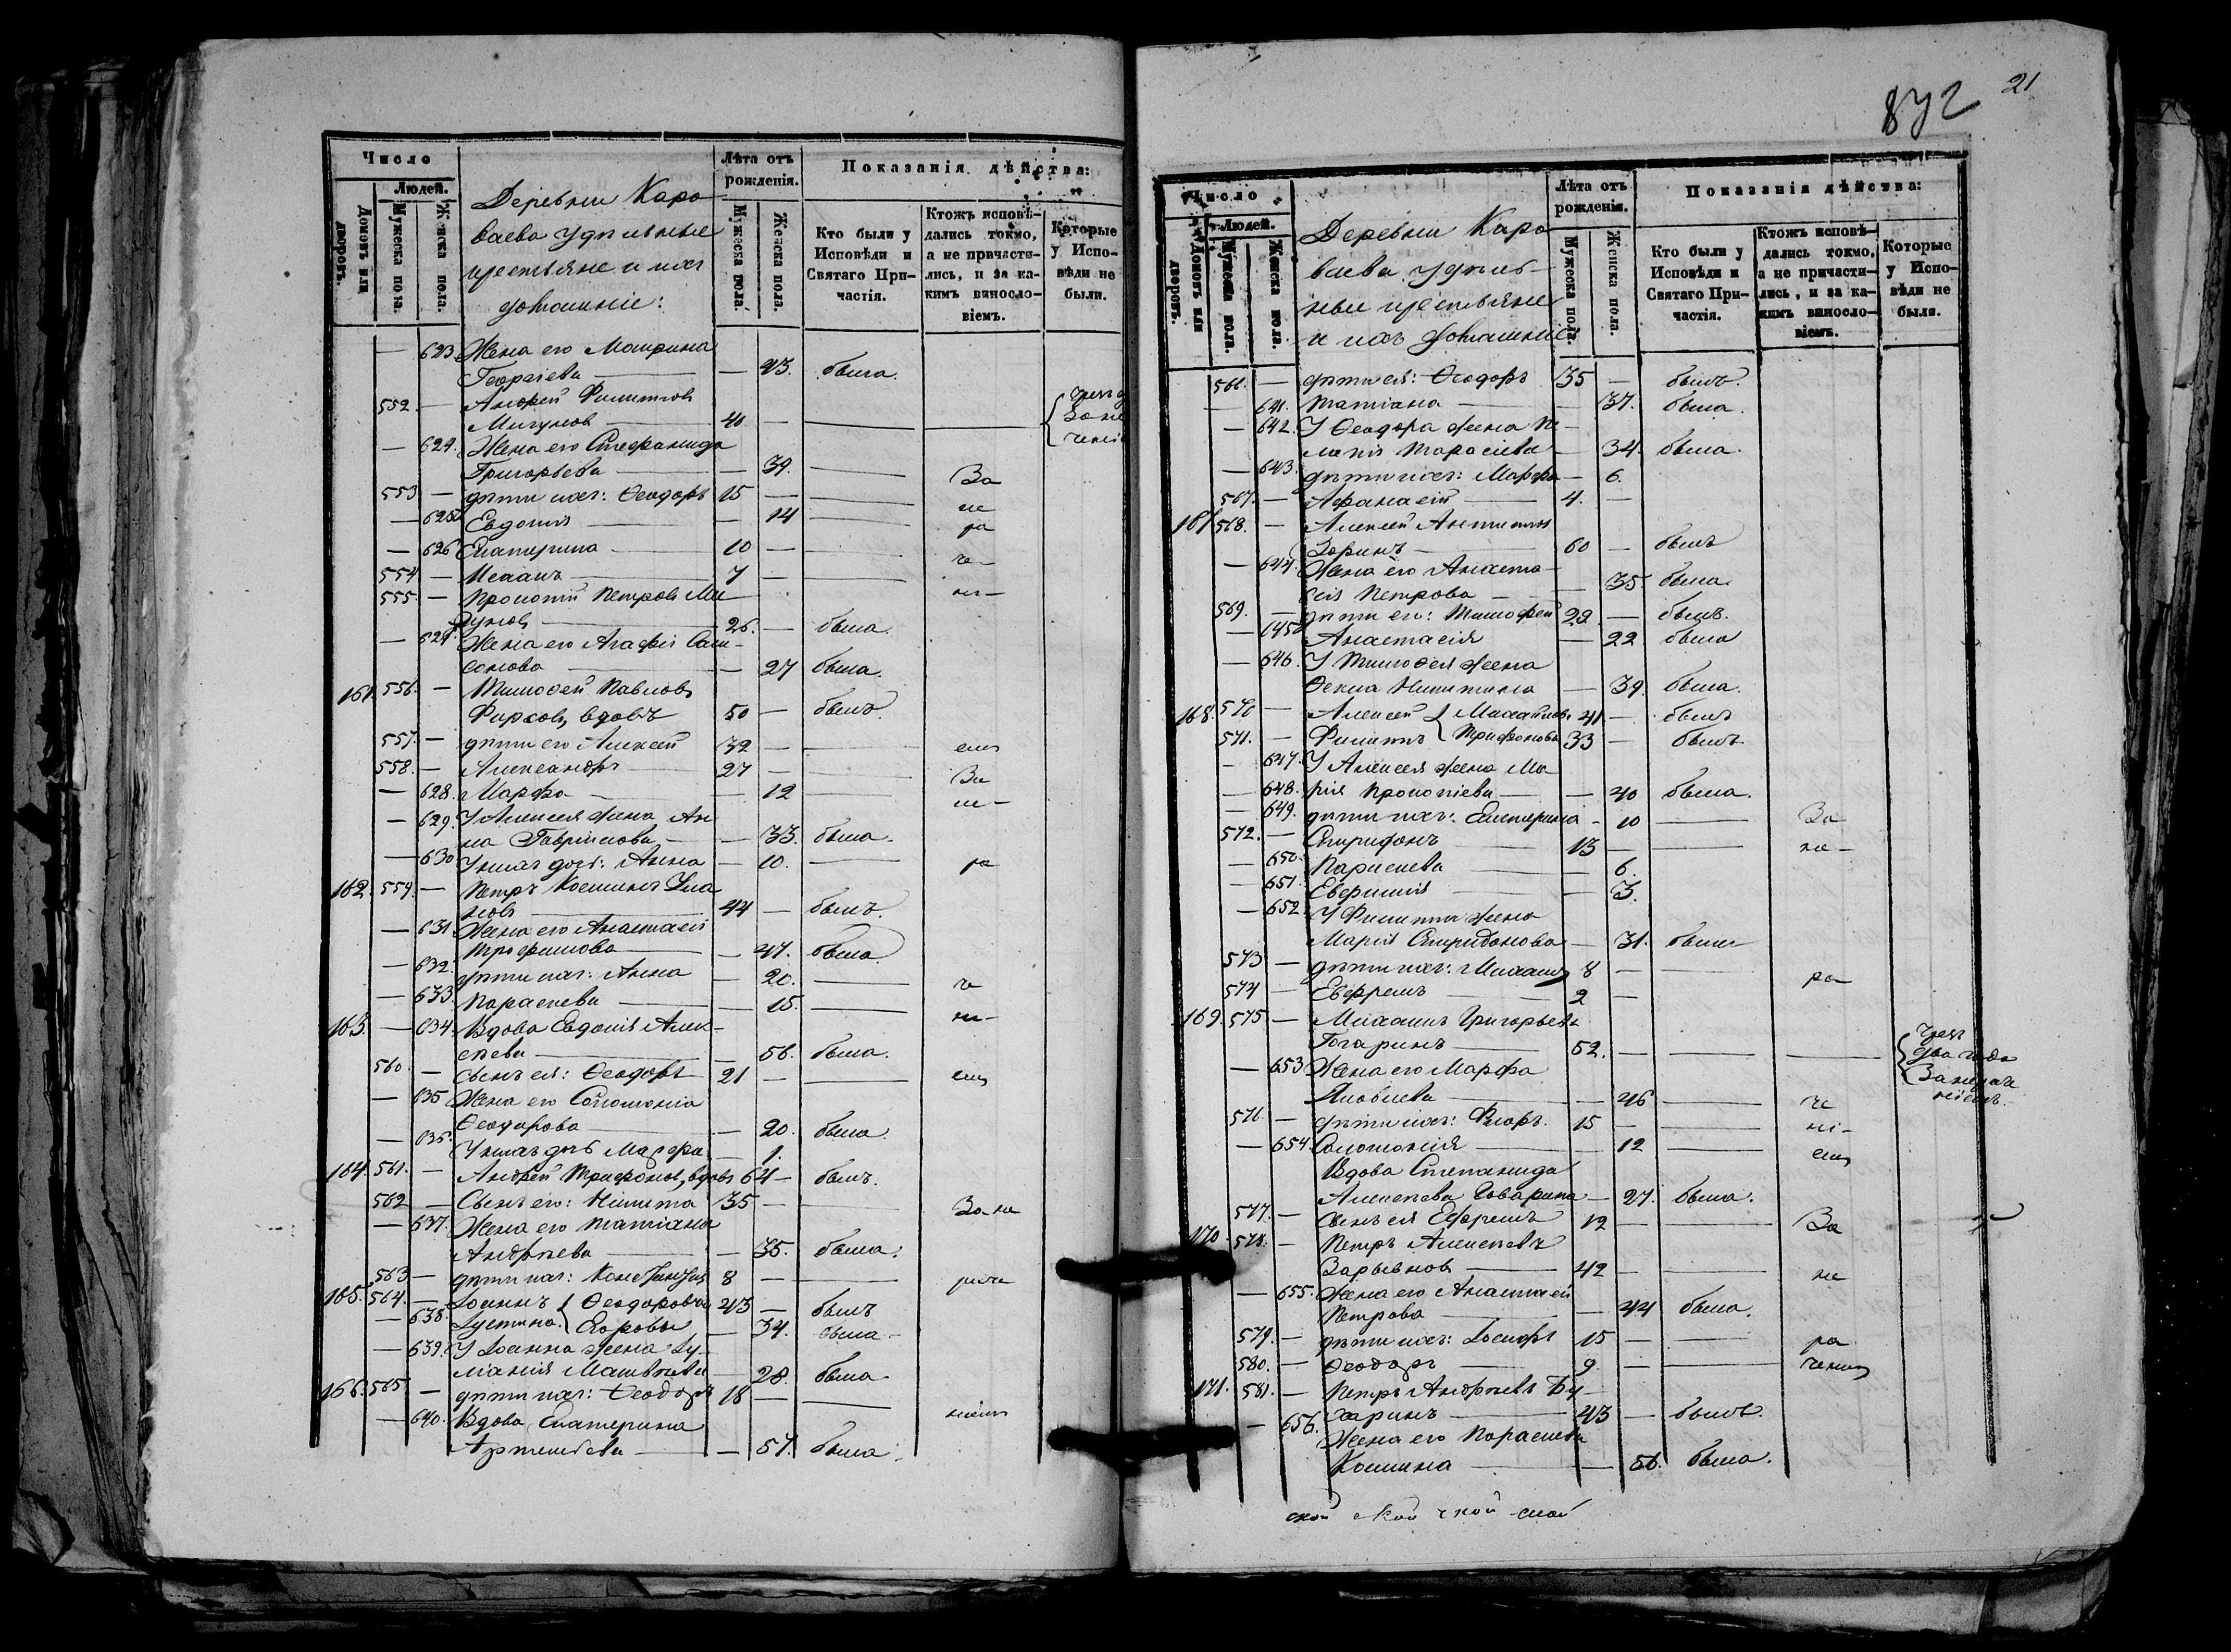 Число
Людей.
Домовъ или дворовъ.
Мужеска пола.
Женска пола.
Деревни Каро
ваева Удѣльные
крестьяне и ихъ
домашніе:
Лѣта отъ рожденія.
Мужеска пола.
Женска пола.
Показанія дѣйства:
Кто были у Исповѣди и Святаго Причастія.
Ктожъ исповѣдались токмо, а не причастились, и за какимъ винословіемъ.
Которые у Исповѣди не были.
— 623 Жена его
Георгіева — — 43. была.
552. — Андрей Филиповъ
40 —
— 624. Жена его Стефанида
Григорьева — — 39. — За
553 — дѣти ихъ: Ѳеодоръ 15 — — не
— 625 Евдокія — — 14 — ра
— 626 Екатерина — 10 — —
554 — 7 — — че-
555. — Прокопій Петровъ Ми
26. — была. ні-
— 627 Жена его Агафія Сам-
сонова — — 27 была.
161. 556. — Тимоѳей Павловъ
вдовъ 50 — былъ.
557. — дѣти его Алексей 32 — — емъ
558. — Александръ — 27 — — За
— 628. Марфа — — 12 — не-
— 629. У Алексея жена Ан
на Гаврилова — — 33. была.
— 630 У нихъ доч: Анна — 10. — ра
162. 559. — Петръ Козминъ
44 — былъ.
— 631 Жена его Анастасія
Трофимова — — 47. была.
— 632. дѣти ихъ: Анна — 20. — че
— 633. Параскева — — 15. — ні-
163. — 634. Вдова Евдокія Алек-
сѣева — — 56. была.
560. — Сынъ ея: Ѳеодоръ 21 — — емъ
— 635 Жена его Соломонія
Ѳеодорова — — 20. была.
— 636. У нихъ дочь Марфа — 1.
164. 561. — Андрей Трифоновъ, вдовъ 64 — былъ.
562 — Сынъ его: Никита 35 — — За не
— 637. Жена его Татіана
Андрѣева — — 35. была.
563 — дѣти ихъ: Константинъ 8 — — раче
165. 564. — Іоаннъ { Ѳеодоровъ 43 — былъ
— 638. Іустина { Егоровы — 34. была.
— 639. У Іоанна жена Іу-
ліанія Матвѣева — 28. была.
166. 565. — дѣти ихъ: Ѳеодоръ 18 — — ніемъ
— 640. Вдова Екатерина
Артемьева — — 57. была.
872
21
Число
Людей.
Домовъ или дворовъ.
Мужеска пола.
Женска пола.
Деревни Каро
ваева Удѣль-
ные крестьяне
и ихъ домашніе
Лѣта отъ рожденія.
Мужеска пола.
Женска пола.
Показанія дѣйства:
Кто были у Исповѣди и Святаго Причастія.
Ктожъ исповѣдались токмо, а не причастились, и за какимъ винословіемъ.
Которые у Исповѣди не были.
566. — дѣти ея: Ѳеодоръ 35 — былъ.
— 641. Татіана — — 37. была.
— 642. У Ѳеодора жена Пе
Тарасіева — 34. была.
— 643. дѣти ихъ: Марфа — 6.
567. — Афанасій — 4. —
167 568. — Алексей Антиповъ
Зоринъ — 60 — былъ
— 644. Жена его Анаста-
сія Петрова — — 35 была.
569. — дѣти ея: Тимофей 22. — былъ.
— 645 Анастасія — — 22 была
— 646. У Тимоѳея жена
Ѳекла Никитина — 39. была.
168. 570 — Алексей { Михайловъ 41 — былъ
571. — Филипъ { Трифоновы 33 — былъ
— 647. У Алексея жена Ма
— 648. рія Прокопіева — — 40 была.
— 649. дѣти ихъ: Екатерина — 10 — За
572. — Спиридонъ — 13 — — не-
— 650. Параскева — — 6.
— 651. Евфимія — — 3.
— 652. У Филиппа жена
Марія Спиридонова — 31. была
573 — дѣти ихъ: Михаилъ 8 — — ра
574 — Ефремъ — 2 —
169. 575. — Михаилъ Григорьевъ
Гагаринъ — 52. — — —
{ чрез
два года
За нераче
ніемъ.
— 653 Жена его Марфа
Яковлева — — 46 — че
576. — дѣти ихъ: Флоръ. 15 — — ні-
— 654. Соломонія — — 12 — емъ
Вдова Степанида
Алексѣева — 27. была.
577. — Сынъ ея Ефремъ 12 — — За
170. 578. — Петръ Алексѣевъ
42 — — не
— 655. Жена его Анастасія
Петрова — — 44 была.
579. — дѣти ихъ: Іосифъ 15 — — ра
580. — Ѳеодоръ — 9. — — ченіемъ
171. 581. — Петръ Андрѣевъ Бу-
харинъ — 43 — былъ.
— 656. Жена его Параскева
Козмина — — 56. была.